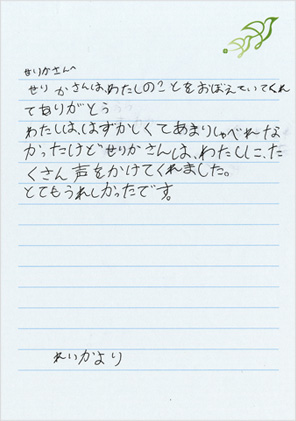 せりかさんへ
せりかさんは、わたしのことをおぼえていてくれ
てありがとう
わたしは、はずかしくてあまりしゃべれな
かったけどせりかさんは、わたしに、た
くさん声をかけてくれました。
とてもうれしかったです。
れいかより